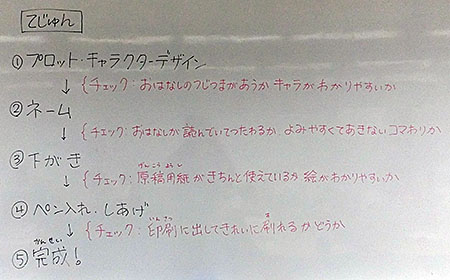 てじゅん
①プロット・キャラクターデザイン
↓{チェック:おはなしのつじつまがあうか キャラがわかりやすいか
②ネーム
↓{チェック:おはなしが読んでいてつたわるか よみやすくてあきないコマわりか
③下がき
げんこうようし
↓{チェック:原稿用紙がきちんと使えているか 絵がわかりやすいか
④ペン入れ・しあげ
いんさつ す
↓{チェック:印刷に出してきれいに刷れるかどうか
かんせい
⑤完成!